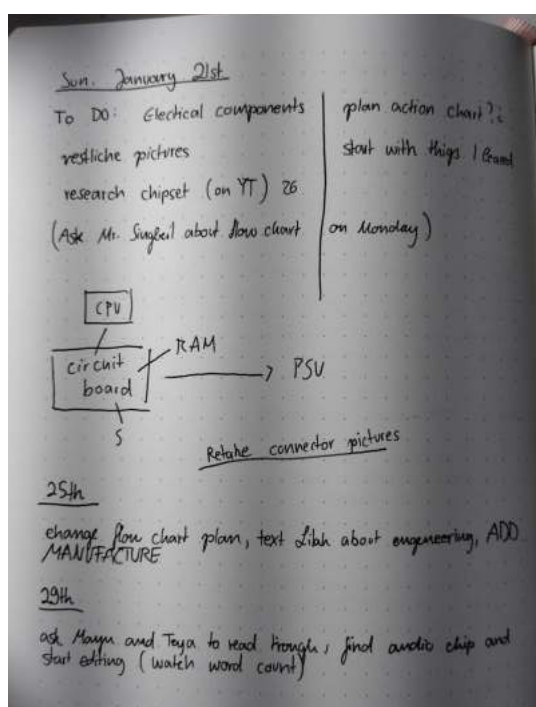 Sun. January 21st
To DO: Electical components
restliche pictures
research chipset (on YT) 26
(Ask Mr. about flow chart on Monday)
plan action chart?
start with thigs I
CPU
circuit
board
RAM
PSU
S
Retake connector pictures
25th
change flow chart plan, text about engeneering, ADD
MANUFACTURE
29th
ask and Teya to read trough, find audio chip and
start editing (watch word count)